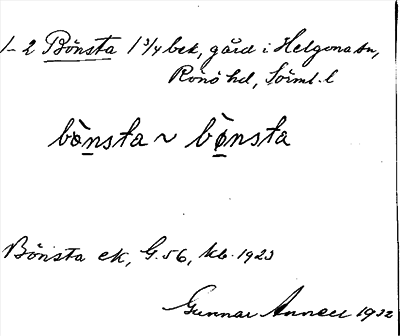 1-2 Bönsta 1 3/4 bek, gård i Helgona sn,
Rönö hd, Södml. l
bònsta ~ bø̀nsta
Bönsta ek, G. 56, kb. 1923
Gunnar Annell 1932